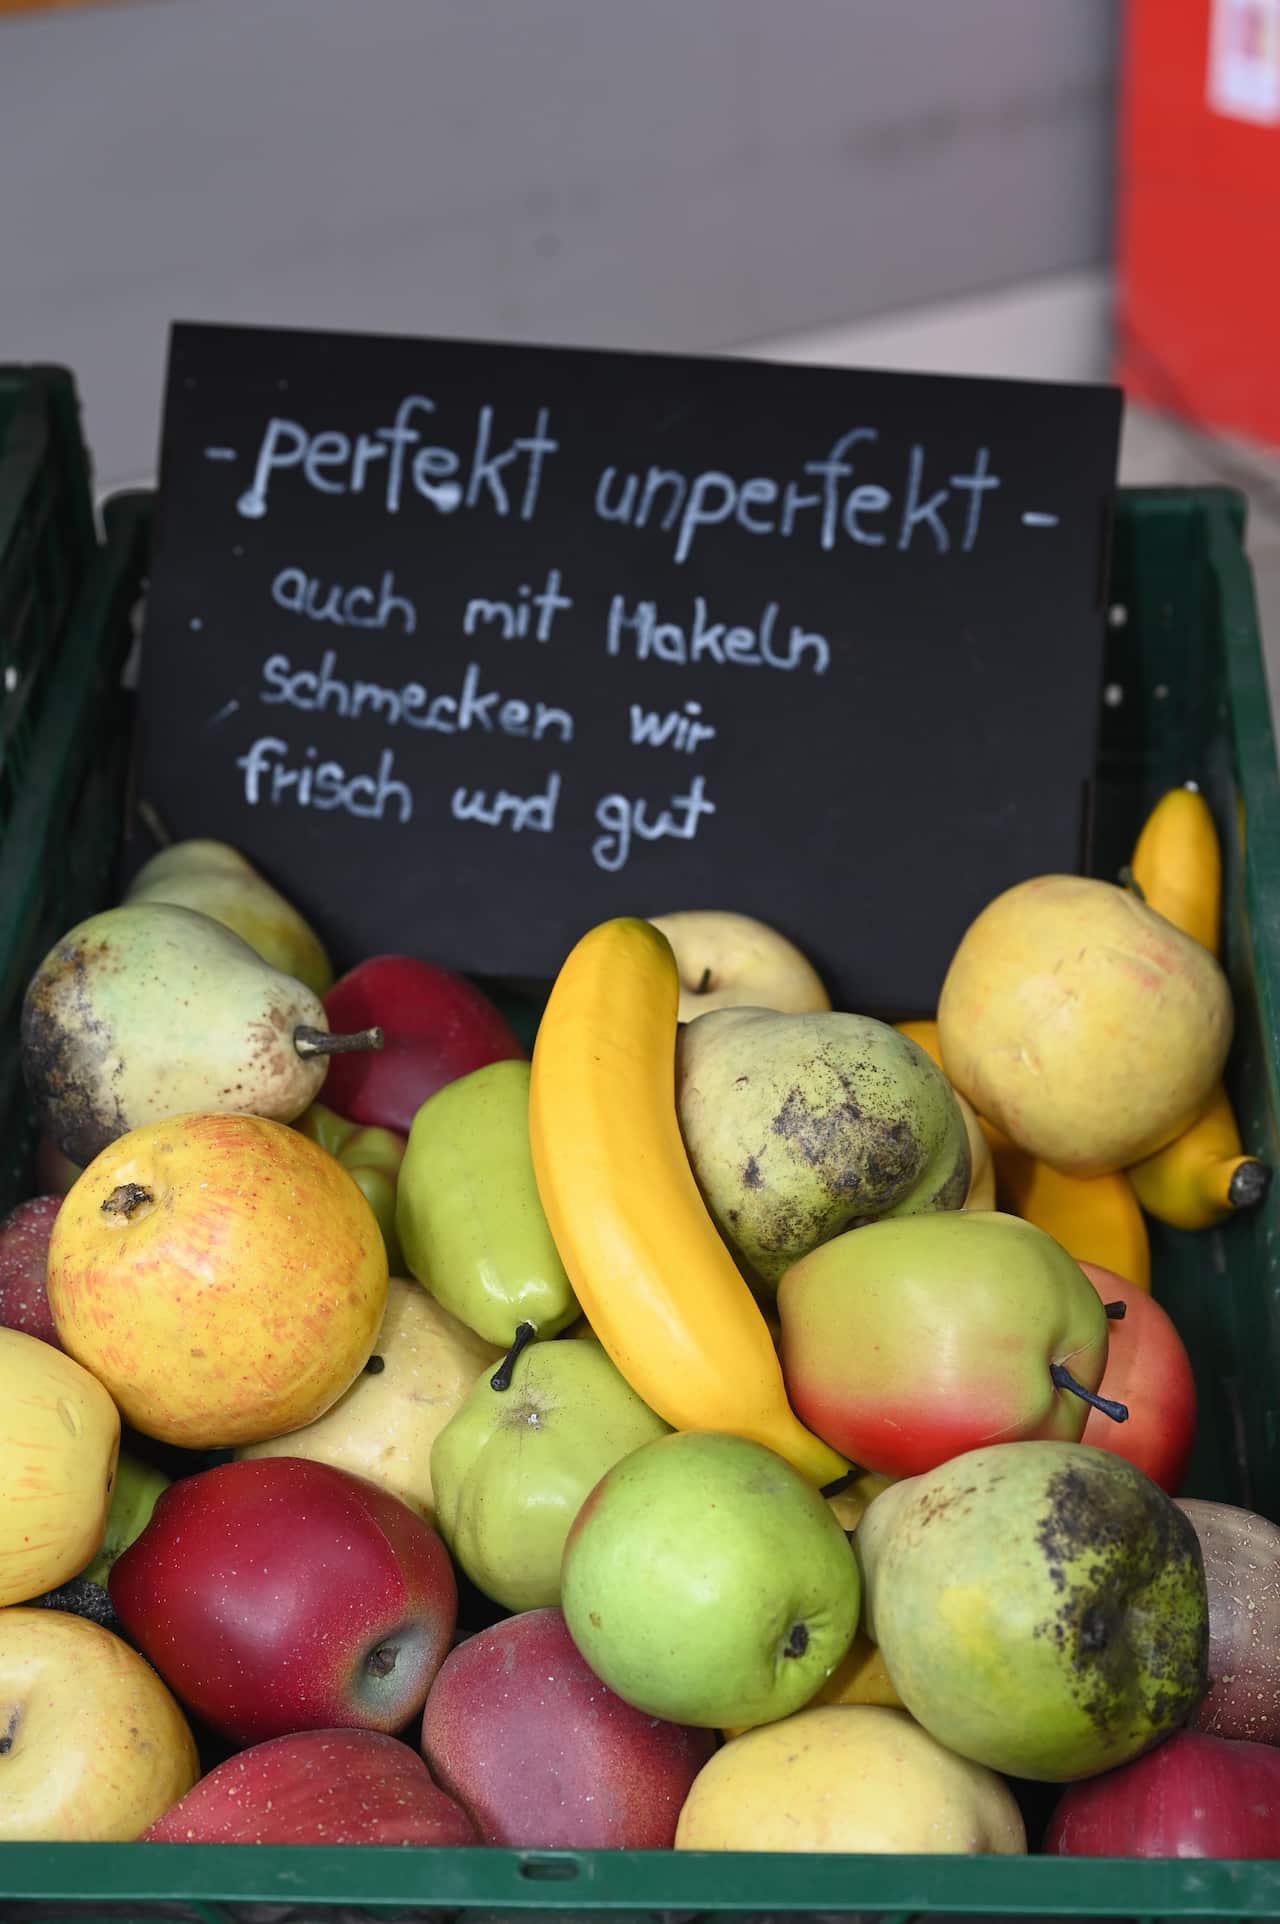 - perfekt unperfekt -
auch mit Makeln
schmecken wir
frisch und gut